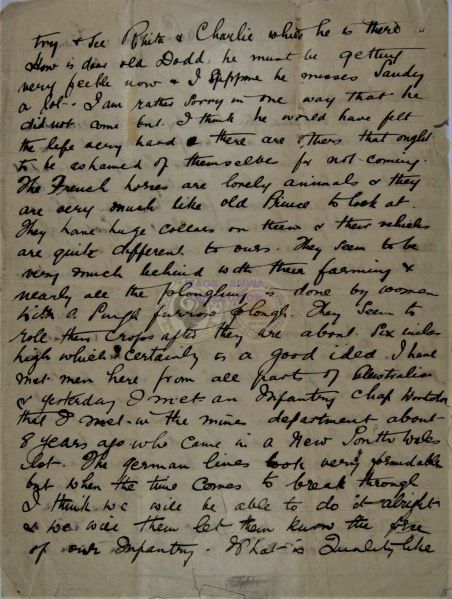 try & see Phil & Charlie while he is there
How is dear old Dodd, he must be getting
very feeble now & I suppose he misses Sandy
a lot. I am rather sorry in one way that he
did not come but I think he would have felt
the life very hard & there are others that ought
to be ashamed of themselves for not coming.
The French horses are lovely animals & they
are very much like old Prince to look at.
They have huge collars on them & their vehicles
are quite different to ours. They seem to be
very much behind with their farming &
nearly all the ploughing is done by women
with a single furrow plough. They seem to
roll their crops after they are about six inches
high which certainly is a good idea. I have
met men here from all parts of Australia
& yesterday I met an Infantry chap
that I met in the mines department about
8 years ago who came in a New South Wales
lot. The German lines look very formidable
but when the time comes to break through
I think we will be able to do it alright
& we will then let them know the
of our Infantry. What is Quality like